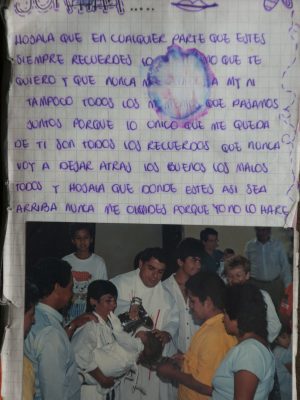 HOSALA QUE EN CUALQUIER PARTE QUE ESTES
SIEMPRE RECUERDES LO NO QUE TE
QUIERO Y QUE NUNCA A MY NI
TAMPOCO TODOS LOS M QUE PASAMOS
JUNTOS PORQUE LO UNICO QUE ME QUEDA
DE TI SON TODOS LOS RECUERDOS QUE NUNCA
VOY A DEJAR ATRAS LOS BUENOS LOS MALOS
TODOS Y HOSALA QUE DONDE ESTES ASI SEA
ARRIBA NUNCA ME OLVIDES PORQUE YO NO LO HARE